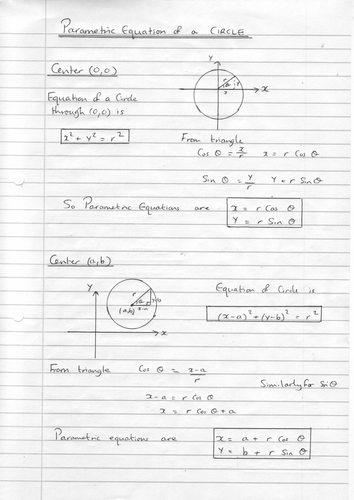 Parametric Equation of a CIRCLE
Center (0,0)
Y
r
θ
y
x
x
Equation of a Circle
through (0,0) is
x² + y² = r²
From triangle
Cos θ = x/r x = r Cos θ
Sin θ = y/r y = r Sin θ
So Parametric Equations are
x = r Cos θ
y = r Sin θ
Center (a,b)
Y
r
y-b
x-a
(a,b)
x
Equation of Circle is
(x-a)² + (y-b)² = r²
From triangle Cos θ = x-a/r
Similarly for Sin θ
x-a = r Cos θ
x = r Cos θ + a
Parametric equations are
x = a + r Cos θ
y = b + r Sin θ